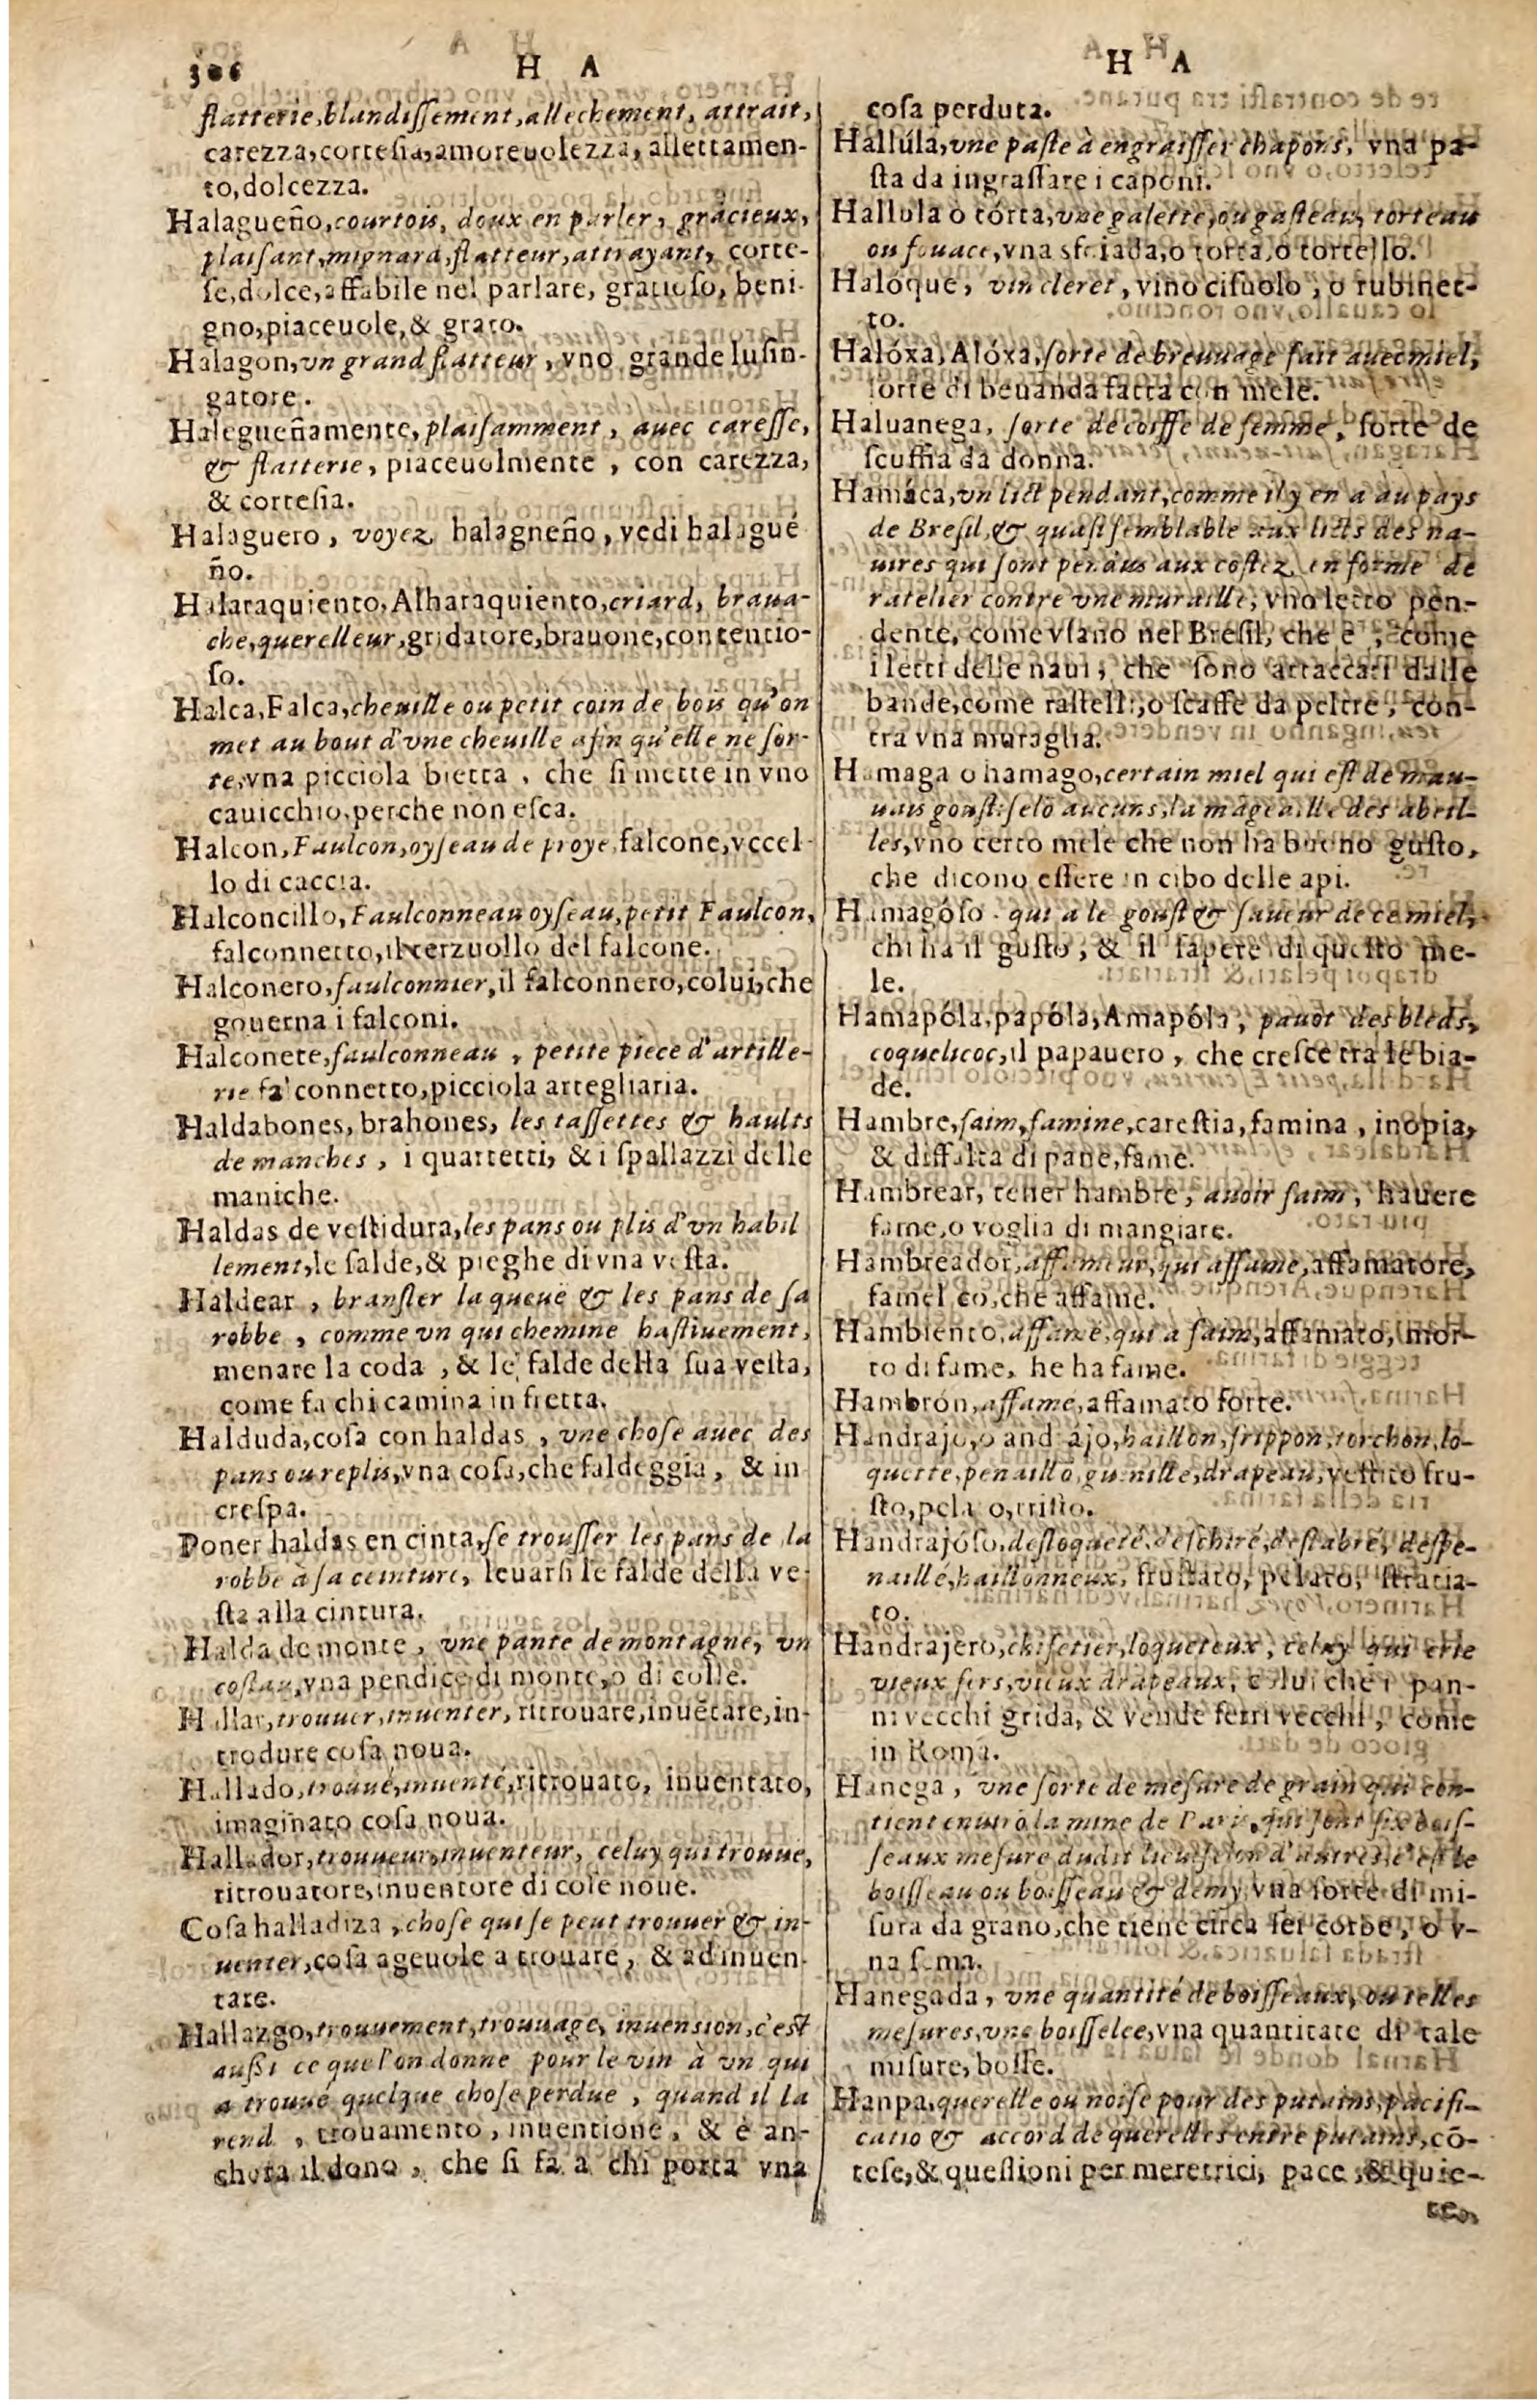 306 H A
flatterie, blandiſſement, allechement, attrait,
carezza, corteſia, amoreuolezza, allettamen-
to, dolcezza.
Halagueño, courtois, doux en parler, gracieux,
plaiſant, mignard, flatteur, attrayant, corte-
ſe, dolce, affabile nel parlare, gratioſo, beni-
gno, piaceuole, & grato.
Halagon, vn grand flatteur, vno grande luſin-
gatore.
Halegueñamente, plaiſamment, auec careſſe,
& flatterie, piaceuolmente, con carezza,
& corteſia.
Halaguero, voyez halagneño, vedi halagué
ño.
Halaraquiento, Alharaquiento, criard, braua-
che, querelleur, gridatore, brauone, contentio-
ſo.
Halca, Falca, cheuille ou petit coin de bois qu'on
met au bout d'vne cheuille afin qu'elle ne ſor-
te, vna picciola bietta, che ſi mette in vno
cauicchio, perche non eſca.
Halcon, Faulcon, oyſeau de proye, falcone, vccel-
lo di caccia.
Halconcillo, Faulconneau oyſeau, petit Faulcon,
falconnetto, il terzuollo del falcone.
Halconero, faulconnier, il falconnero, colui, che
gouerna i falconi.
Halconete, faulconneau, petite piece d'artille-
rie falconnetto, picciola artegliaria.
Haldabones, brahones, les taſſettes & haults
de manches, i quartetti, & i ſpallazzi delle
maniche.
Haldas de veſtidura, les pans ou plis d'vn habil
lement, le falde, & pieghe di vna veſta.
Haldear, branſler la queuë & les pans de ſa
robbe, comme vn qui chemine haſtiuement,
menare la coda, & le falde della ſua veſta,
come fa chi camina in fretta.
Halduda, coſa con haldas, vne choſe auec des
pans ou replis, vna coſa, che faldeggia, & in
creſpa.
Poner haldas en cinta, ſe trouſſer les pans de la
robbe à ſa ceinture, leuarſi le falde della ve-
ſta alla cintura.
Halda de monte, vne pante de montagne, vn
coſtau, vna pendice di monte, o di colle.
Hallar, trouuer, inuenter, ritrouare, inuētare, in-
trodure coſa noua.
Hallado, trouué, inuenté, ritrouato, inuentato,
imaginato coſa noua.
Hallador, trouueur, inuenteur, celuy qui trouue,
ritrouatore, inuentore di coſe noue.
Coſa halladiza, choſe qui ſe peut trouuer & in-
uenter, coſa ageuole a trouare, & ad inuen-
tare.
Hallazgo, trouuement, trouuage, inuension, c'est
auſſi ce que l'on donne pour le vin à vn qui
a trouué quelque choſe perdue, quand il la
rend, trouamento, inuentione, & è an-
chora il dono, che ſi fa a chi porta vna
H A
coſa perduta.
Hallúla, vne paſte à engraiſſer chapons, vna pa-
ſta da ingraſſare i caponi.
Hallula o tórta, vne galette, ou gaſteau, torteau
ou fouace, vna sfoiada, o torta, o tortello.
Halóque, vin cleret, vino ciſuolo, o rubinet-
to.
Halóxa, Alóxa, ſorte de breuuage fait auec miel,
ſorte di beuanda fatta con mele.
Haluanega, ſorte de coiffe de femme, ſorte de
ſcuffia da donna.
Hamáca, vn lict pendant, comme il y en a au pays
de Breſil, & quaſi ſemblable aux licts des na-
uires qui ſont pendus aux coſtez en forme de
ratelier contre vne muraille, vno letto pen-
dente, come vſano nel Breſil, che è, come
i letti delle naui, che ſono attaccati dalle
bande, come raſtelli, o ſcaffe da peltre, con-
tra vna muraglia.
Hamaga o hamago, certain miel qui eſt de mau-
uais gouſt: ſelō aucuns, la māgeaille des abeil-
les, vno certo mele che non ha buono guſto,
che dicono eſſere in cibo delle api.
Hamagóſo. qui a le gouſt & ſaueur de ce miel,
chi ha il guſto, & il ſapere di queſto me-
le.
Hamapóla, papóla, Amapóla, pauot des bleds,
coquelicoc, il papauero, che creſce tra le bia-
de.
Hambre, faim, famine, careſtia, famina, inopia,
& diffalta di pane, fame.
Hambrear, tener hambre, auoir faim, hauere
fame, o voglia di mangiare.
Hambreador, affameur, qui affame, affamatore,
famelico, che affame.
Hambiento, affamé, qui a faim, affamato, mor-
to di fame, he ha fame.
Hambrón, affamé, affamato forte.
Handrajo, o andrájo, haillon, frippon, torchon, lo-
quette, penaillō, guenille, drapeau, veſtito fru-
ſto, pelato, triſto.
Handrajóſo, deſloqueté, deſchiré, deſlabré, deſpe-
naillé, haillonneux, fruſtato, pelato, ſtratia-
to.
Handrajero, chifetier, loqueteux, celuy qui crie
vieux fers, vieux drapeaux, colui che i pan-
ni vecchi grida, & vende ferri vecchi, come
in Roma.
Hanega, vne ſorte de meſure de grain qui con-
tient enuirō la mine de Paris, qui ſont ſix boiſ-
ſeaux meſure dudit lieu, ſelon d'autres c'eſt le
boiſſeau ou boiſſeau & demy, vna ſorte di mi-
ſura da grano, che tiene circa ſei corbe, o v-
na ſoma.
Hanegada, vne quantité de boiſſeaux, ou telles
meſures, vne boiſſelee, vna quantitate di tale
miſure, boſſe.
Hanpa, querelle ou noiſe pour des putains, pacifi-
catiō & accord de querelles entre putains, cō-
teſe, & queſtioni per meretrici, pace, & quie-
te,